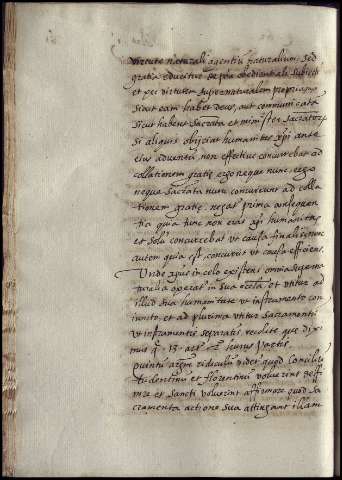 virtute naturali agentium naturalium, sed
gratia educitur de potentia obedientiali subiecti
et per virtutem supranaturalem propriam
sicut eam habet deus, aut communicatam
sicut habent sacramenta et minister sacramentorum
Si aliquis obijciat humanitas xpi ante
eius adventum non effective concurrebat ad
collationem gratiæ ergo neque nunc, ergo
neque sacramenta nunc concurrunt ad colla
tionem gratiæ, negat prima consequen
tia quia tunc non erat xpi humanitas
et solum concurrebat ut causa finalis nunc
autem quia est, concurrit ut causa efficiens.
Unde agus in celo existens omnia superna
turalia operat in sua ecclesia, et utitur ad
illud sua humanitate ut instrumento con
iuncto, et ad plurima utitur sacramentis
ut instrumentis separatis, recolite quæ dixi
mus q. 13. art. 2. huius partis.
quintum argumentum ridiculum videtur quod Concilium
tridentinum et florentinum voluerint defi
nire et sancti voluerint affirmare quod sa
cramenta actione sua attingant illam